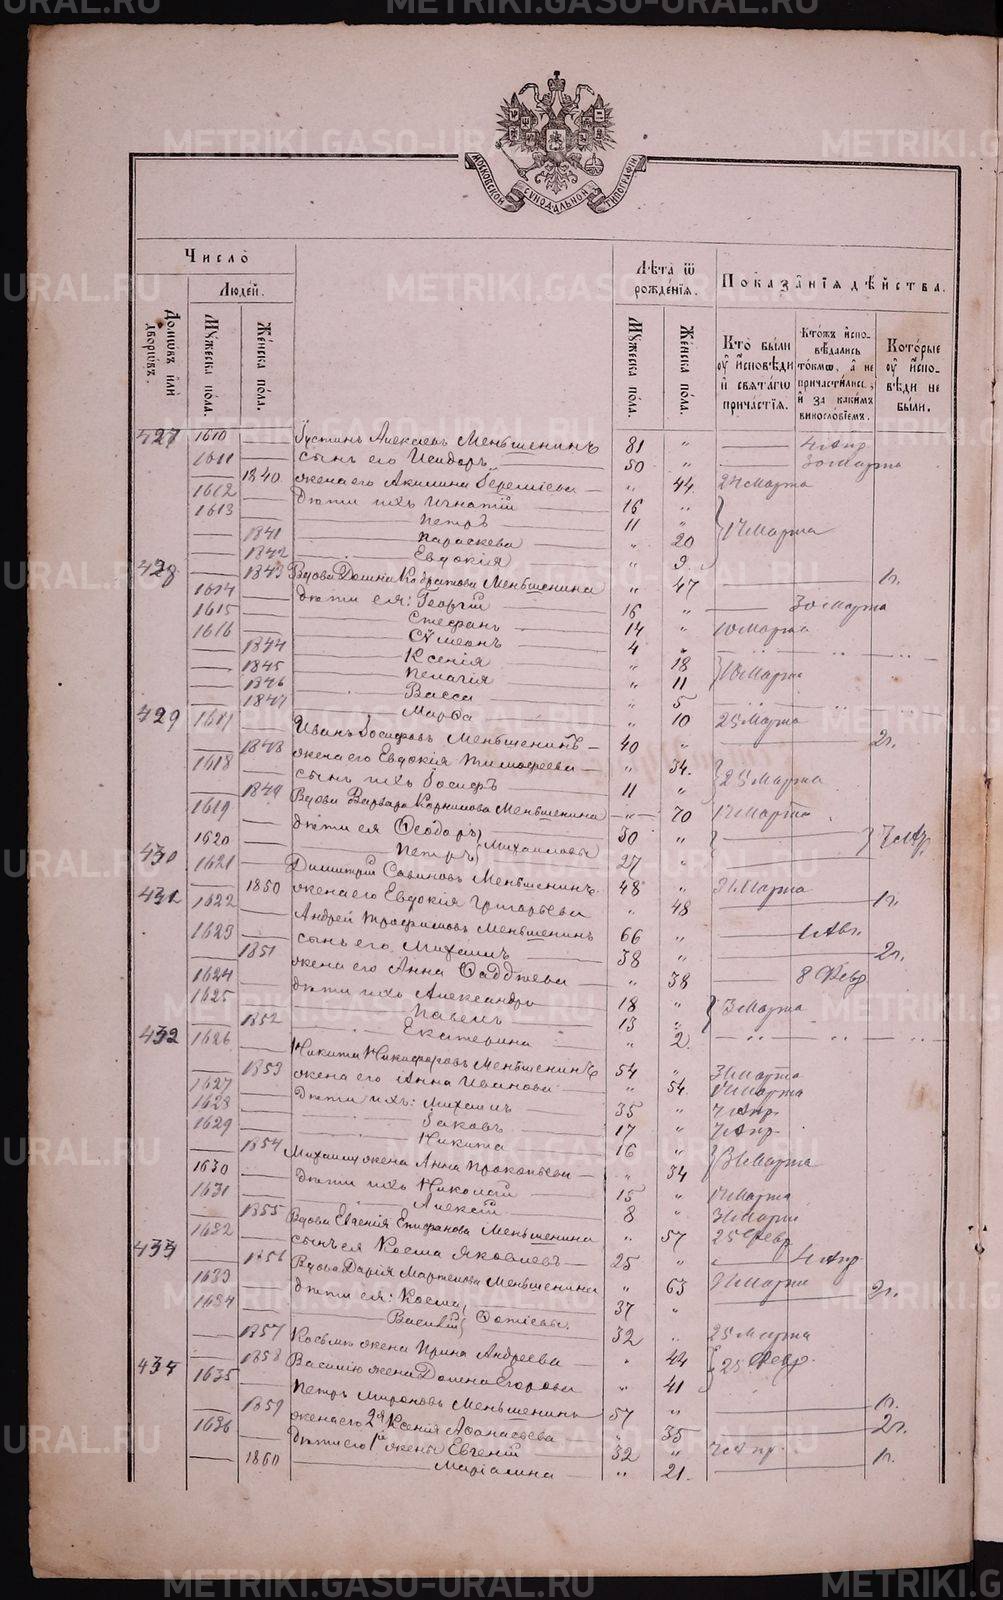 METRIKI.GASO-URAL.RU
МОСКОВСКОЙ СѴНОДАЛЬНОЙ ТИПОГРАФІИ
Число̀
Люде́й.
Домѡ́въ и҆лѝ дворѡ́въ.
Мꙋ́жеска по́ла.
Же́нска по́ла.
Лѣ́та ѿ рожде́нїѧ.
Мꙋ́жеска по́ла.
Же́нска по́ла.
Показа̑нїѧ дѣ́йства.
Кто̀ бы́ли ᲂу҆ и҆сповѣ́ди и҆ свѧта́гѡ прича́стїѧ.
Кто́жъ и҆сповѣ́дались то́кмѡ, а҆ не причасти́лись, и҆ за каки́мъ винословїемъ.
Кото́рые ᲂу҆ и҆́сповѣди не бы́ли.
427 1610 Іустинъ Алексѣевъ Меньшенинъ 81 " 4 Апр
1611 сынъ его Исидоръ 50 " 30 Марта
1840 жена его Акилина Іереміева " 44 24 Марта
1612 дѣти ихъ Игнатій 16 "
1613 Петръ 11 " 17 Марта
1841 Параскева " 20
1842 Евдокія " 9
428 1843 Вдова Домна Меньшенина " 47 1 г.
1614 дѣти ея: Георгій 16 " 30 Марта
1615 Стефанъ 14 " 10 Марта
1616 Сѵмеонъ 4 "
1844 Ксенія " 18
1845 Пелагія " 11 10 Марта
1846 Васса " 5
1847 Марѳа " 10 25 Марта
429 1617 Иванъ Іосифовъ Меньшенинъ 40 " 2 г.
1848 жена его Евдокія Тимофеева " 34
1618 сынъ ихъ Іосифъ 11 " 25 Марта
1849 Вдова Варвара Корнилова Меньшенина " 70 17 Марта
1619 дѣти ея Ѳеодоръ Михаиловы 30 " 7 Апр.
1620 Петръ 27 "
430 1621 Димитрій Савиновъ Меньшенинъ 48 " 31 Марта
1850 жена его Евдокія Григорьева " 48 1 г.
431 1622 Андрей Трофимовъ Меньшенинъ 66 "
1623 сынъ его Михаилъ 38 " 2 г.
1851 жена его Анна Ѳаддѣева " 38 8 Февр
1624 дѣти ихъ Александръ 18 "
1625 Павелъ 13 " 3 Марта
1852 Екатерина " 2
432 1626 Никита Никифоровъ Меньшенинъ 54 " 31 Марта
1853 жена его Анна Иванова " 54 17 Марта
1627 Дѣти ихъ: Михаилъ 35 " 7 Апр.
1628 Іаковъ 17 " 7 Апр.
1629 Никита 16 "
1854 Михаила жена Анна Прокопьева " 34 31 Марта
1630 дѣти ихъ Николай 15 " 17 Марта
1631 Алексій 8 " 31 Марта
1855 Вдова Евгенія Епифанова Меньшенина " 57 25 Февр.
1632 сынъ ея Косма Яковлевъ 25 " 4 Апр
433 1856 Вдова Дарія Меньшенина " 63 31 Марта
1633 дѣти ея: Косма 37 " 2 г.
1634 Василій Фотіевы 32 " 25 Марта
1857 Косьмы жена Ирина Андреева " 44
1858 Василію жена Домна Егорова " 41 25 Февр.
434 1635 Петръ Мироновъ Меньшенинъ 57 " 1 г.
1859 жена его 2я Ксенія Аѳанасьева " 35 2 г.
1636 дѣти его 1й жены Евгеній 32 " 7 Апр. 1 г.
1860 Маріамна " 21